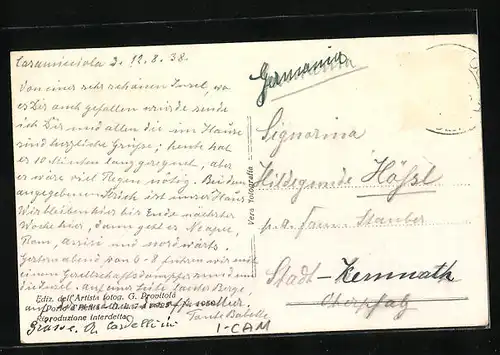 Casamicciola d. 12.8.38.
Von einer sehr schönen Insel, wo
es Dir auch gefallen würde sende
ich Dir und allen die im Hause
sind herzliche Grüsse; heute hat
es 10 Minuten lang geregnet, aber
es wäre viel Regen nötig. Bei dem
angegebenen Strich ist unser Haus
Wir bleiben hier bis Ende nächster
Woche hier, dann geht es Neapel,
Rom, Assisi und nordwärts.
Gestern abend von 6-8 fuhren wir mit
einem Gesellschaftsdampfer rund um
die Insel. Auf eine Seite
Ediz. dell'Artista fotog. G.
Riproduzione interdetta
Tante Babette
I-CAM
Vera fotografia
Germania
Signorina
Hildegunde Hößl
Stauber
Stadt-Kemnath
Oberpfalz